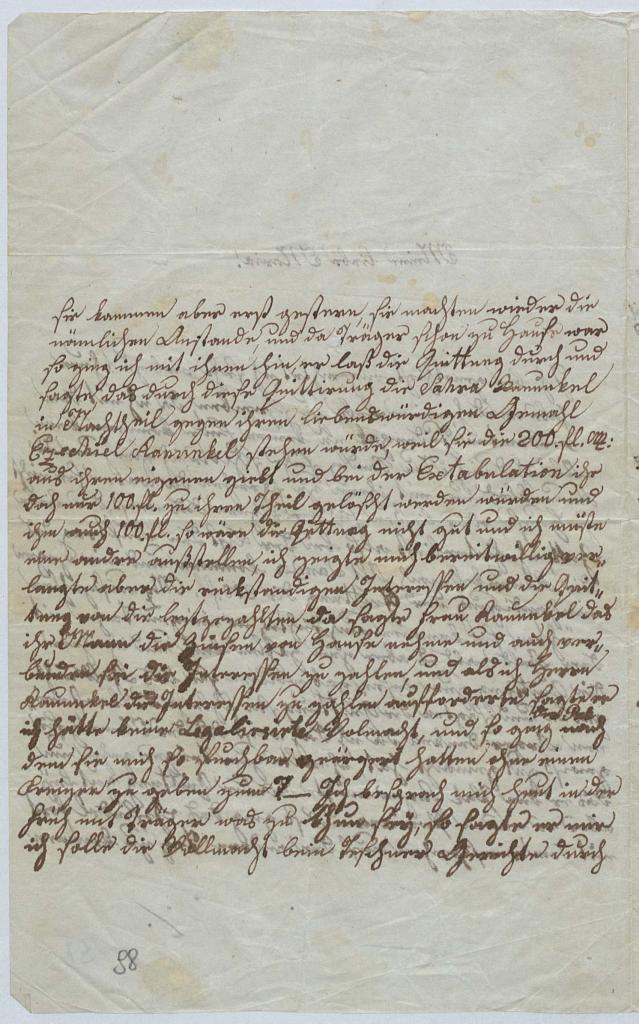 sie kammen aber erst gestern, sie machten wieder die
nämlichen Anstände, und da Träger schon zu Hause war
so ging ich mit ihnen hin, er laß die Quittung durch und
sagte, das durch diese Quittirung die Sahra Kanunkel
in Nachtheil gegen ihren liebenswürdigen Gemahl
Ezechiel Kanunkel stehen würde, weil sie die 200.fl.
aus ihren eigenen giebt und bei der Extabulation ihr
doch nur 100.fl. zu ihren Theil gelöscht werden würden und
ihm auch 100.fl. so wäre die Quittung nicht gut und ich müste
eine andre außstellen, ich zeigte mich bereitwillig ver-
langte aber die rückständigen Interessen und die Quit-
tung von die letztgezahlten, da sagte Frau Kanunkel das
ihr Mann die Zinsen von Hause nehme und auch ver-
bunden sei die Interessen zu zahlen, und als ich Herrn
Kanunkel die Interessen zu zahlen aufforderte sagte er
ich hätte keine Legalisirte Volmacht, und so ging
nach
dem sie mich so furchbar geärgert hatten ohne einen
Kreuzer zu geben zum T— Ich besprach mich heut in der
Früh mit Träger was zu thun sey, so sagte er mir
ich solle die Vollmacht beim Teschner Gerichte durch
88